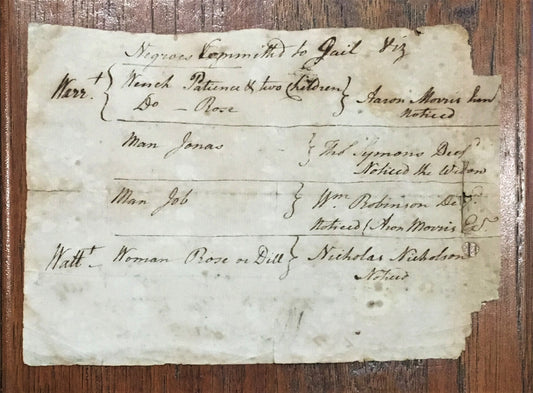 Negroes Committed to Gail Viz
Warr.t Wench Patience & two Children
Do – Rose
Aaron Morris
Noticed
Man Jonas
Tho.s Symons Dec.d
Noticed the Widow
Man Job
Wm. Robinson
Noticed Morris
Watt.t Woman Rose or Dill
Nicholas Nicholson
Noticed